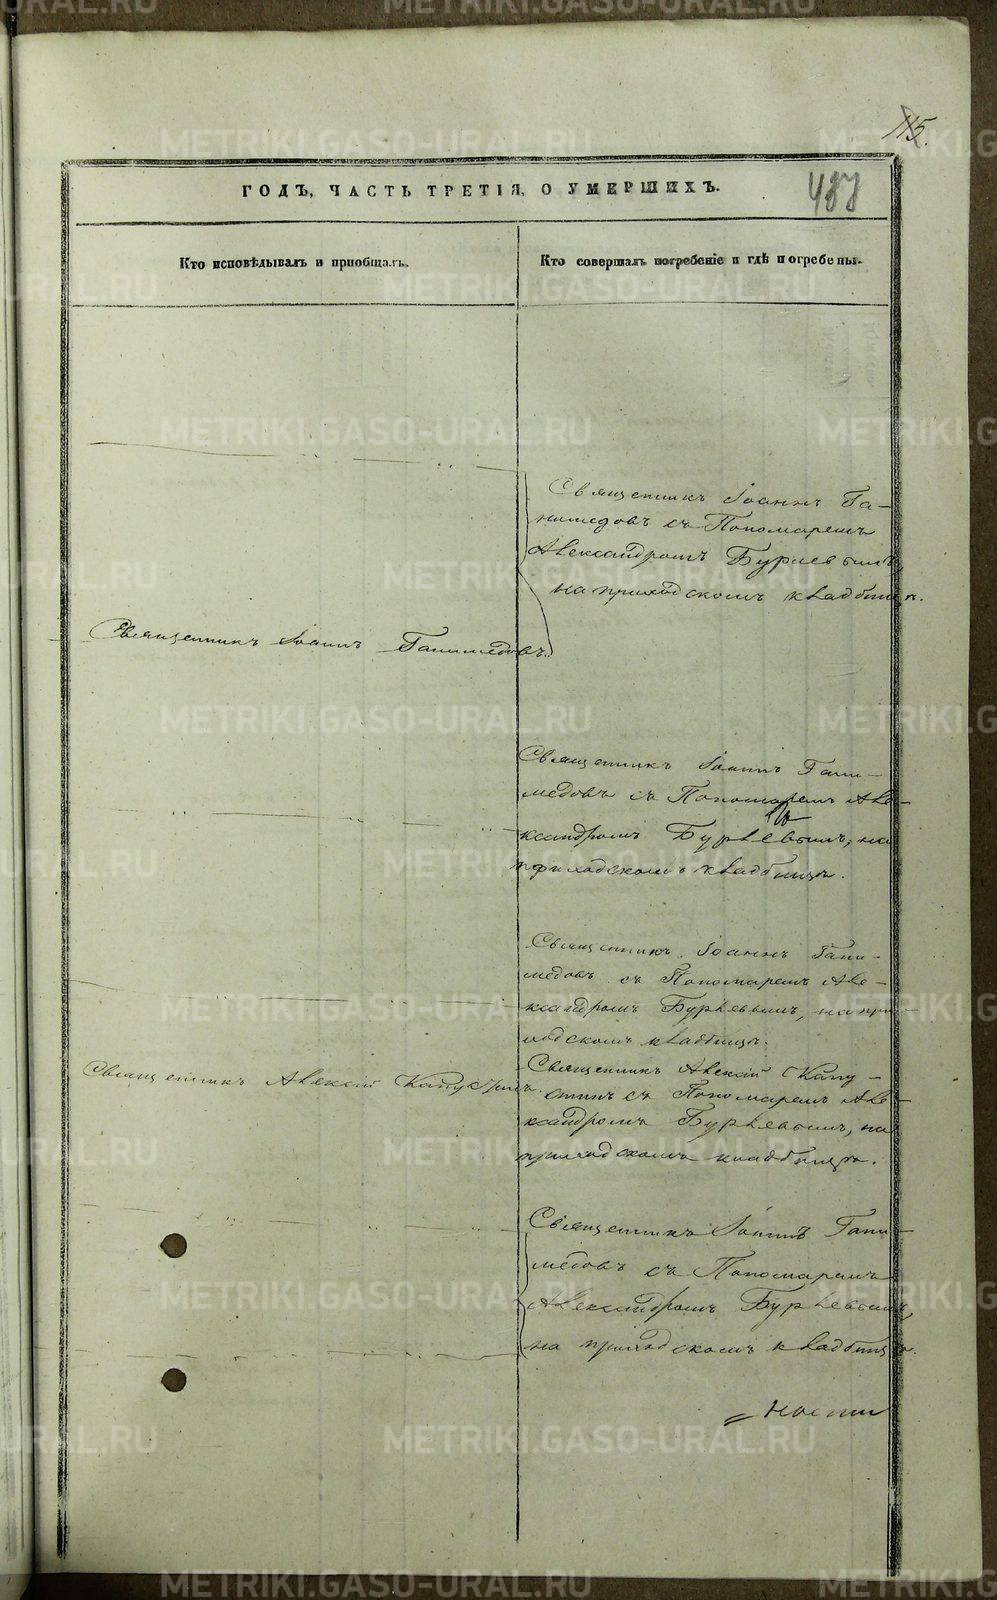 115.
487
ГОДЪ, ЧАСТЬ ТРЕТІЯ, О УМЕРШИХЪ.
Кто исповѣдывалъ и пріобщалъ.
Кто совершалъ погребеніе и гдѣ погребены.
Священникъ Іоаннъ Га-
нимедовъ съ Пономаремъ
Александромъ Бурлевымъ,
на приходскомъ кладбищѣ.
Священникъ Іоаннъ Ганимедовъ.
Священникъ Іоаннъ Гани-
медовъ съ Пономаремъ Але-
ксандромъ Бурлевымъ, на
приходскомъ кладбищѣ.
Священникъ Іоаннъ Гани-
медовъ съ Пономаремъ Але-
ксандромъ Бурлевымъ, на при-
ходскомъ кладбищѣ.
Священникъ Алексій Капустинъ.
Священникъ Алексій Капу-
стинъ съ Пономаремъ Але-
ксандромъ Бурлевымъ, на
приходскомъ кладбищѣ.
Священникъ Іоаннъ Гани-
медовъ съ Пономаремъ
Александромъ Бурлевымъ,
на приходскомъ кладбищѣ.
METRIKI.GASO-URAL.RU